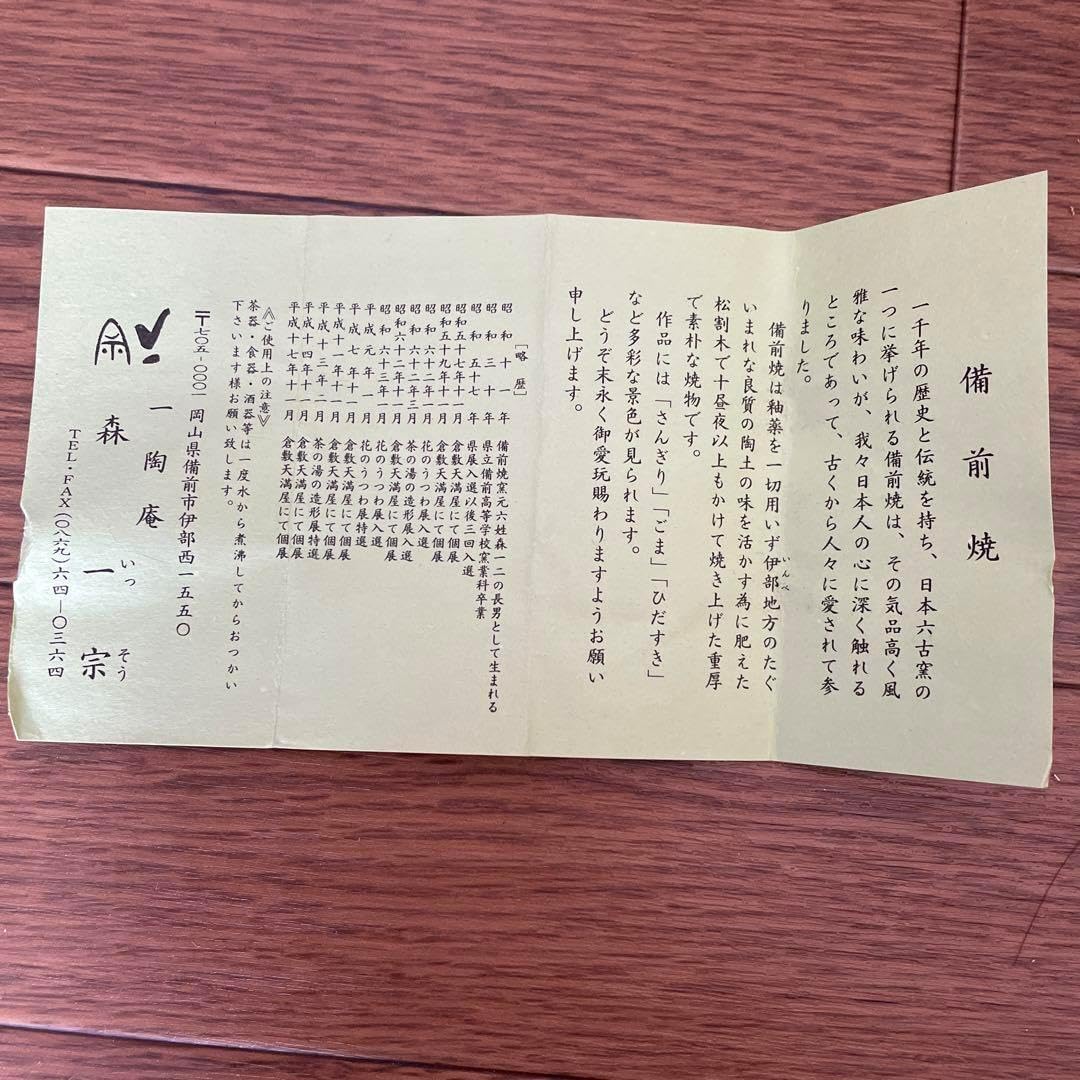 備前焼
一千年の歴史と伝統を持ち、日本六古窯の
一つに挙げられる備前焼は、その気品高く風
雅な味わいが、我々日本人の心に深く触れる
ところであって、古くから人々に愛されて参
りました。
備前焼は釉薬を一切用いず伊部地方のたぐ
いんべ
いまれな良質の陶土の味を活かす為に肥えた
松割木で十昼夜以上もかけて焼き上げた重厚
で素朴な焼物です。
作品には「さんぎり」「ごま」「ひだすき」
など多彩な景色が見られます。
どうぞ末永く御愛玩賜わりますようお願い
申し上げます。
[略歴]
昭和十一年 備前焼窯元六姓森一二の長男として生まれる
昭和三十年 県立備前高等学校窯業科卒業
昭和五十七年 県展入選以後三回入選
昭和五十七年十一月 倉敷天満屋にて個展
昭和五十九年十一月 倉敷天満屋にて個展
昭和六十二年一月 花のうつわ展入選
昭和六十二年三月 茶の湯の造形展入選
昭和六十二年十一月 倉敷天満屋にて個展
昭和六十三年一月 花のうつわ展入選
平成元年一月 花のうつわ展特選
平成七年十一月 倉敷天満屋にて個展
平成十一年十一月 倉敷天満屋にて個展
平成十三年二月 茶の湯の造形展特選
平成十四年十一月 倉敷天満屋にて個展
平成十七年十一月 倉敷天満屋にて個展
《ご使用上の注意》
茶器・食器・酒器等は一度水から煮沸してからおつかい
下さいます様お願い致します。
〒七〇五-〇〇〇一 岡山県備前市伊部西一五五〇
一陶庵
森一宗
いっそう
TEL・FAX(〇八六九)六四-〇三六四